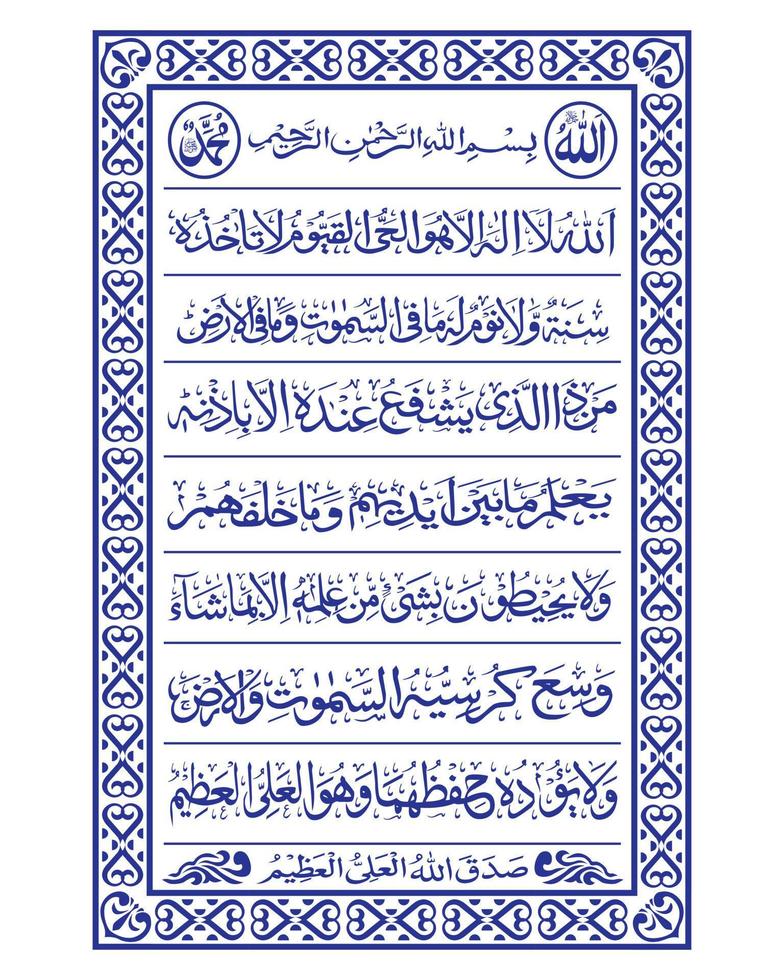 اللهُ ﷻ بِسْمِ اللهِ الرَّحْمٰنِ الرَّحِيْمِ مُحَمَّدٌ ﷺ
اَللهُ لَاۤ اِلٰهَ اِلَّا هُوَ الْحَيُّ الْقَيُّوْمُ لَا تَاْخُذُهٗ
سِنَةٌ وَّلَا نَوْمٌ لَهٗ مَا فِي السَّمٰوٰتِ وَمَا فِي الْاَرْضِ
مَنْ ذَا الَّذِيْ يَشْفَعُ عِنْدَهٗ اِلَّا بِاِذْنِهٖ
يَعْلَمُ مَا بَيْنَ اَيْدِيْهِمْ وَمَا خَلْفَهُمْ
وَلَا يُحِيْطُوْنَ بِشَيْءٍ مِّنْ عِلْمِهٖ اِلَّا بِمَا شَآءَ
وَسِعَ كُرْسِيُّهُ السَّمٰوٰتِ وَالْاَرْضَ
وَلَا يَئُوْدُهٗ حِفْظُهُمَا وَهُوَ الْعَلِيُّ الْعَظِيْمُ
صَدَقَ اللهُ الْعَلِيُّ الْعَظِيْمُ